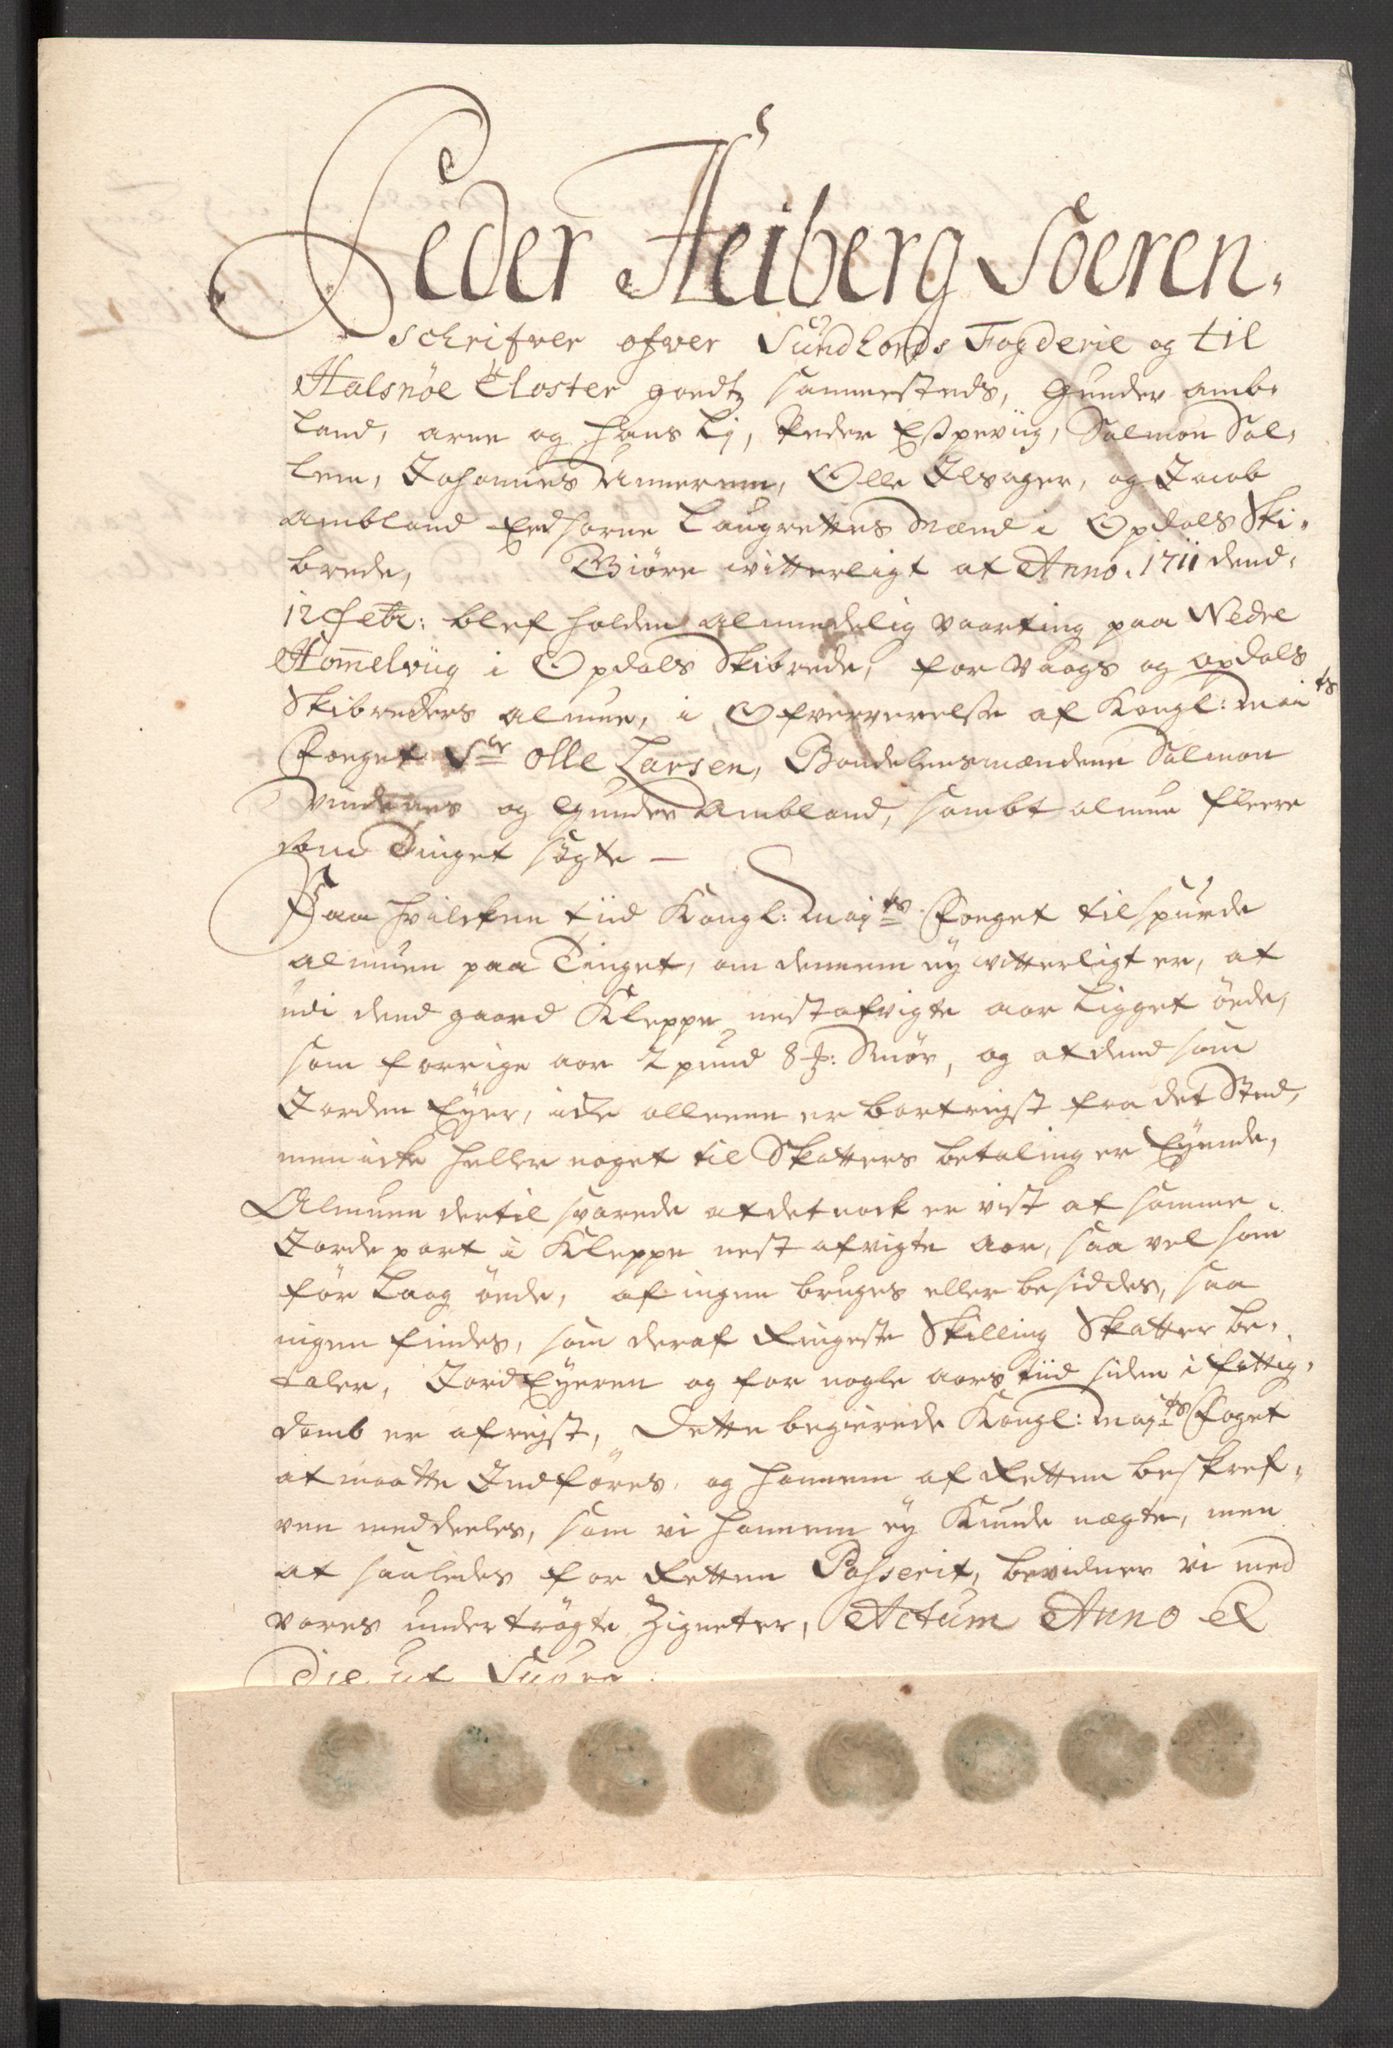 Peder Heiberg Soeren,
schrifver ofver Sundlords Fogderie og til
Halsnøe Closter goedtz sammesteds, Gunder Amb-
land, Arne og Hans Li, Peder Espeviig, Salmon Sal-
lem, Johannes Unnerem, Olle Ilsager, og Jacob
Ambland Eedsorne Laugrettes Mænd i Opdals Ski-
brede, Giøre vitterligt at Anno. 1711 dend.
12 febr: blef holden almindelig Vaarting paa Nedre
Hommelviig i Opdals Skibrede, for Vaags og Opdals
Skibreders Almue, i Ofververelse af Kongl: Maits
Foeget Sr Olle Larsen, Bondelensmændene Salmon
Vindenes og Gunder Ambland, sambt almue fleere
som Tinget søgte —
Paa hvilcken tiid Kongl: Maits Foeget tilspurde
almuen paa Tinget, om dennem ey vitterligt er, at
udi dend gaard Kleppe nestafvigte aar ligget öede,
som forrige aar 2 pund 8 ℔: Smør, og at dend som
Jorden Eyer, icke alleene er bortreyst fra det Sted,
men icke heller noget til Skatters betaling er Eyende,
Almuen dertil svarede at det nock er vist at samme
Jordepart i Kleppe nest afvigte aar, saa vel som
før Laag öede, af ingen bruges eller besiddes, saa
ingen findes, som deraf Ringeste Skilling Skatter be-
taler, JordEyeren og for nogle aars tiid siden i fattig-
domb er afreyst, Dette begierede Kongl: Mayts Foget
at maatte Indføres, og hannem af Retten beskref-
ven meddeeles, som vi hannem ey Kunde nægte, men
at saaledes for Retten Passerit, bevidner vi med
vores undertrøgte Zigneter, Actum Anno &
Die ut Supra